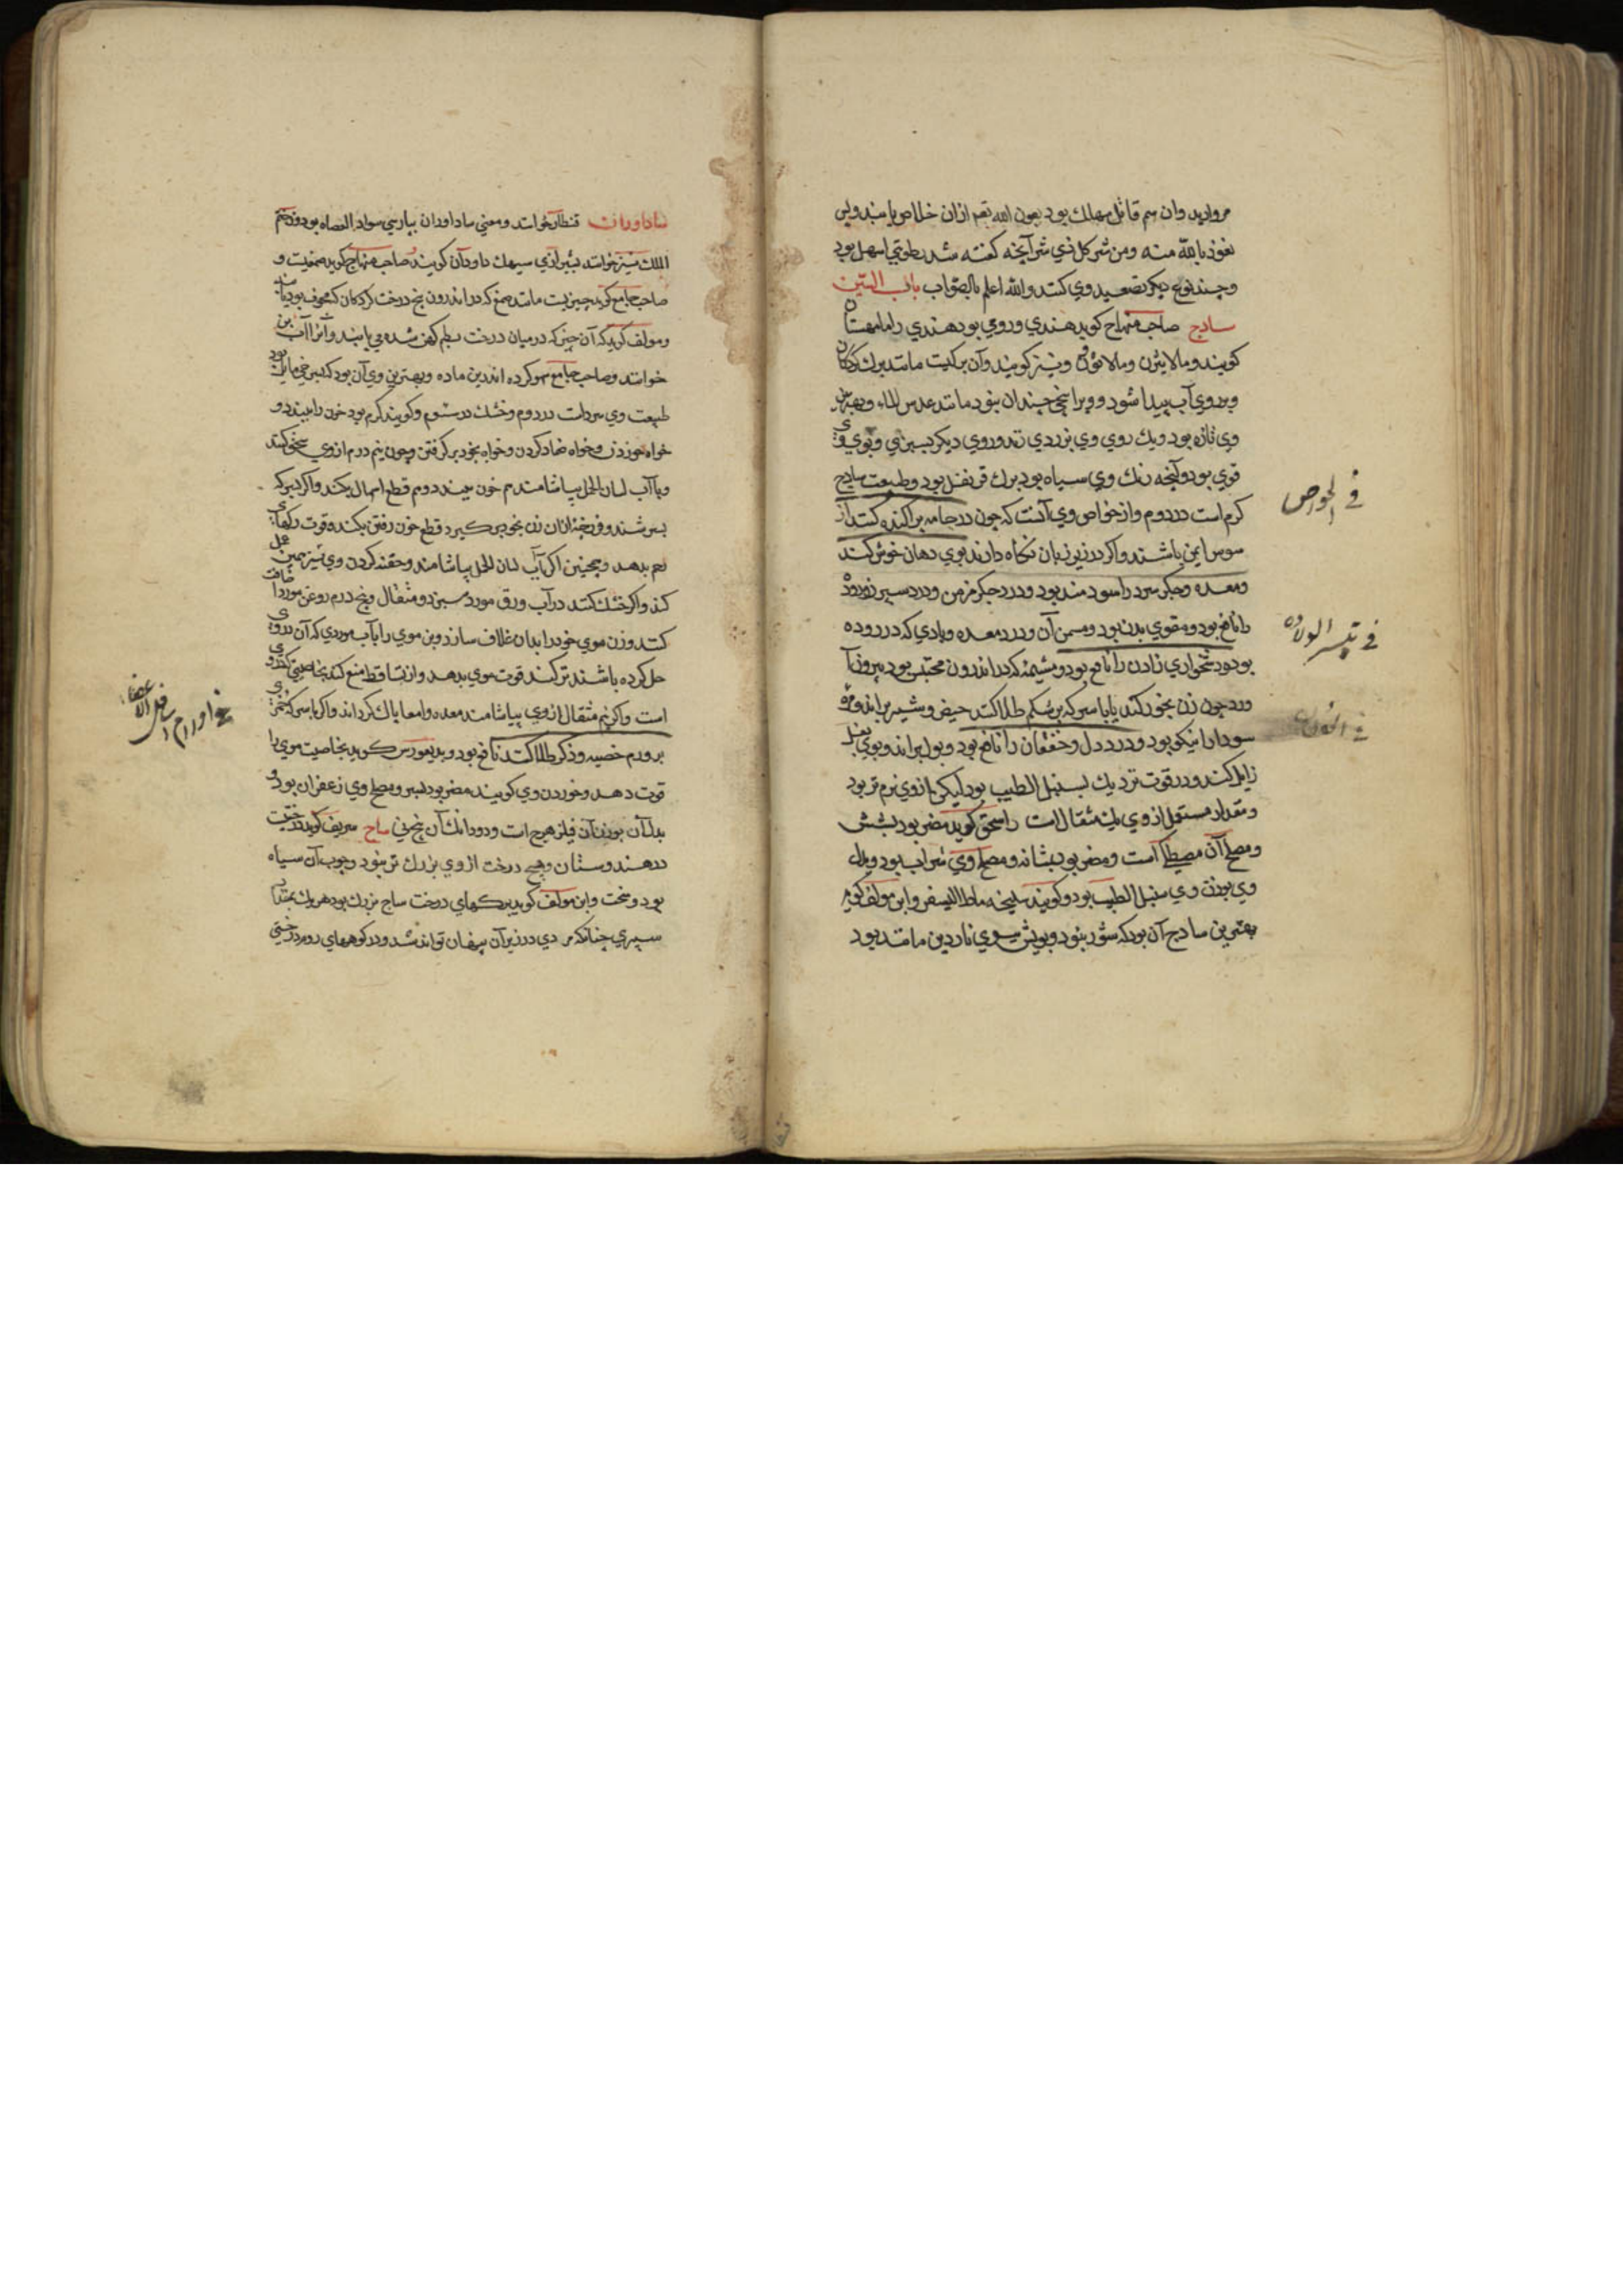 مروارید وان سم قاتل مهلك بود بعون الله تعم ازان خلاص یابند ولی
نعوذ بالله منه ومن شر كل ذی شر آنچه گفته شد بطوقی اسهل بود
وچند نوع دیكر تصعید وی كنند والله اعلم بالصواب باب السین
سادج صاحب منهاج كوید هندي ورومي بود هندي را مامهستان
كویند ومالابثرن ومالاثرن ونیز كویند وآن بركیست مانند برك كردكان
وبر روي آب پیدا شود وویرا بیخ چندان نبود مانند عدس الماء وبهترین
وي تازه بود ویك روي وي بزردي زند وروي دیكر بسبزي وبوي وي
قوي بود وآنچه رنك وي سیاه بود برك قرنفل بود وطبیعت سادج
كرم است در دوم واز خواص وي آنست كه چون در جامه پراكنده كنند از
سوس ایمن باشند واكر در زیر زبان نكاه دارند بوي دهان خوش كند
ومعده وجكر سرد را سودمند بود ودرد جكر مزمن ودرد سپرز
را نافع بود ومقوي بدن بود ومسمن آن ودرد معده وبادي كه در روده
بود ودشخواري زادن را نافع بود ومشیمه كه در اندرون محتبس بود بیرون آ
ورد چون زن بخور كند یا با سركه بر شكم طلا كند حیض وشیر براند ومره
سودا را نیكو بود ودرد دل وخفقان را نافع بود وبول براند وبوي بغل
زایل كند ودر قوت نزدیك بسنبل الطیب بود لیكن از وي نرم تر بود
ومقدار مستعمل از وي یك مثقال است اسحق كوید مضر بود بشش
ومصلح آن مصطكا است ومضر بود بمثانه ومصلح وي شراب بود وبدل
وي بوزن وي سنبل الطیب بود وكویند سلیخه وابن مولف كوید
بهترین سادج آن بود كه شور نبود وبویش ببوي ناردین مانند بود
في الخواص
في تیسر الولاده
ساداوران قنطار خوانند ومعني ساداوران بپارسي سواد القضاه بود وختم
الملك نیز خوانند بشیرازي سیهك داودان كویند صاحب منهاج كوید صمغیست و
صاحب جامع كوید چیزیست مانند صمغ كه در اندرون بیخ درخت كردكان كه مجوف بود یابند
ومولف كوید كه آن چیز كه در میان درخت بطم كهن شده مي یابند وآنرا آب بن
خوانند وصاحب جامع سهو كرده اند بدین ماده وبهترین وي آن بود كه بسرخي مایل بود
طبیعت وي سردست در دوم وخشك در سوم وكویند كرم بود خون را ببندد و
خواه خوردن وخواه ضماد كردن وخواه بخود بر كرفتن وچون نیم درم از وي سحق كنند
وبا آب لسان الحمل بیاشامند دم خون ببندد وم قطع اسهال بكند واكر بسركه
بسرشند وفرزجه از آن زن بخود بر كیرد قطع خون رفتن بكند وقوت ركهاي
رحم بدهد وهمچنین اكر بآب لسان الحمل بیاشامند وحقنه كردن وي نیز همین عمل
كند واكر خشك كنند در آب ورق مورد سبز دو مثقال وپنج درم روغن مورد اضافت
كنند وزن موي خود را بدان غلاف سازد وبن موي را بآب موردي كه آن در وي
حل كرده باشند تر كند قوت موي بدهد واز تساقط منع كند بخاصیتي كه در وي
است واكر نیم مثقال از وي بیاشامند معده وامعا پاك كرداند واكر با سركه خمري
بر ورم خصیه وذكر طلا كنند نافع بود ودیمقورس كوید بخاصیت موي را
قوت دهد وخوردن وي كویند مضر بود بسر ومصلح وي زعفران بود و
بدل آن بوزن آن فیلزهرج است ودو دانك آن ساج شریف كوید درختیست
در هندوستان وهیچ درخت از وي بزرك تر نبود وچوب آن سیاه
بود وسخت وابن مولف كوید بركهاي درخت ساج بزرك بود هر یك بمقدار
سپري چنانكه مردي در زیر آن پنهان تواند شد ودر كوههاي روم درختي
في اورام اسافل الاعضا